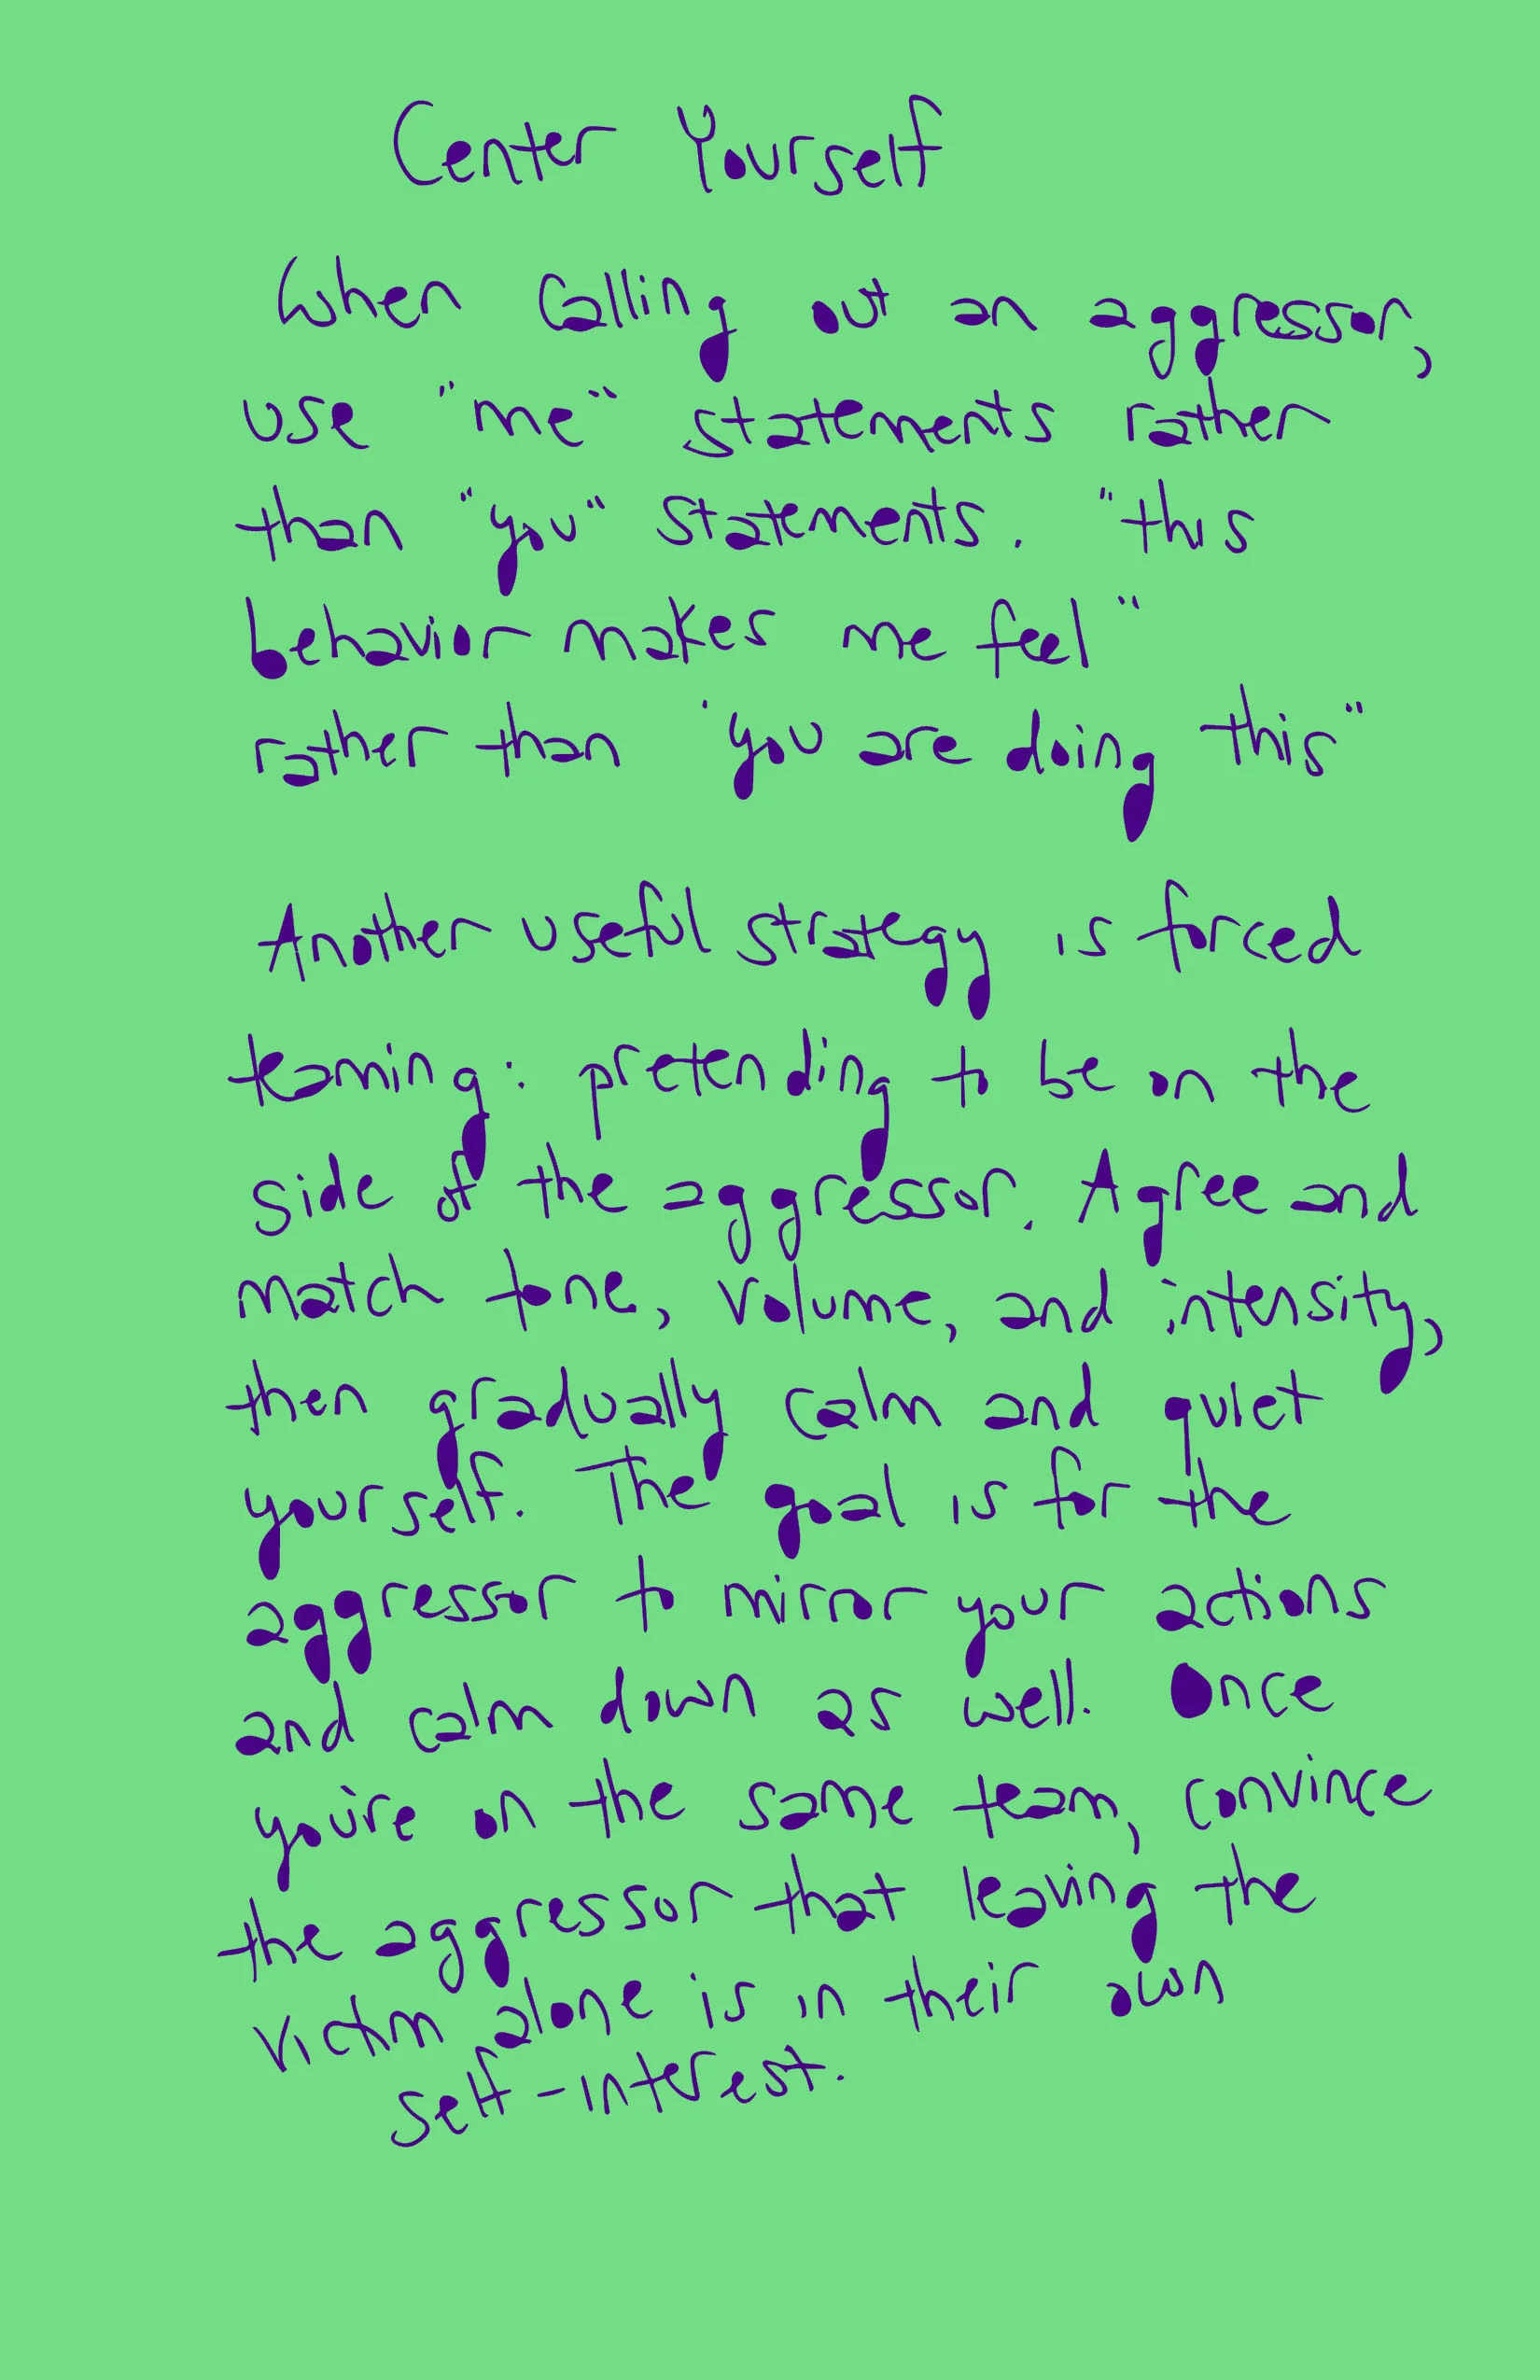 Center Yourself
When calling out an aggressor,
use "me" statements rather
than "you" statements. "this
behavior makes me feel"
rather than 'you are doing this"
Another useful strategy is forced
teaming: pretending to be on the
side of the aggressor. Agree and
match tone, volume, and intensity,
then gradually calm and quiet
yourself. The goal is for the
aggressor to mirror your actions
and calm down as well. Once
you're on the same team, convince
the aggressor that leaving the
victim alone is in their own
self-interest.